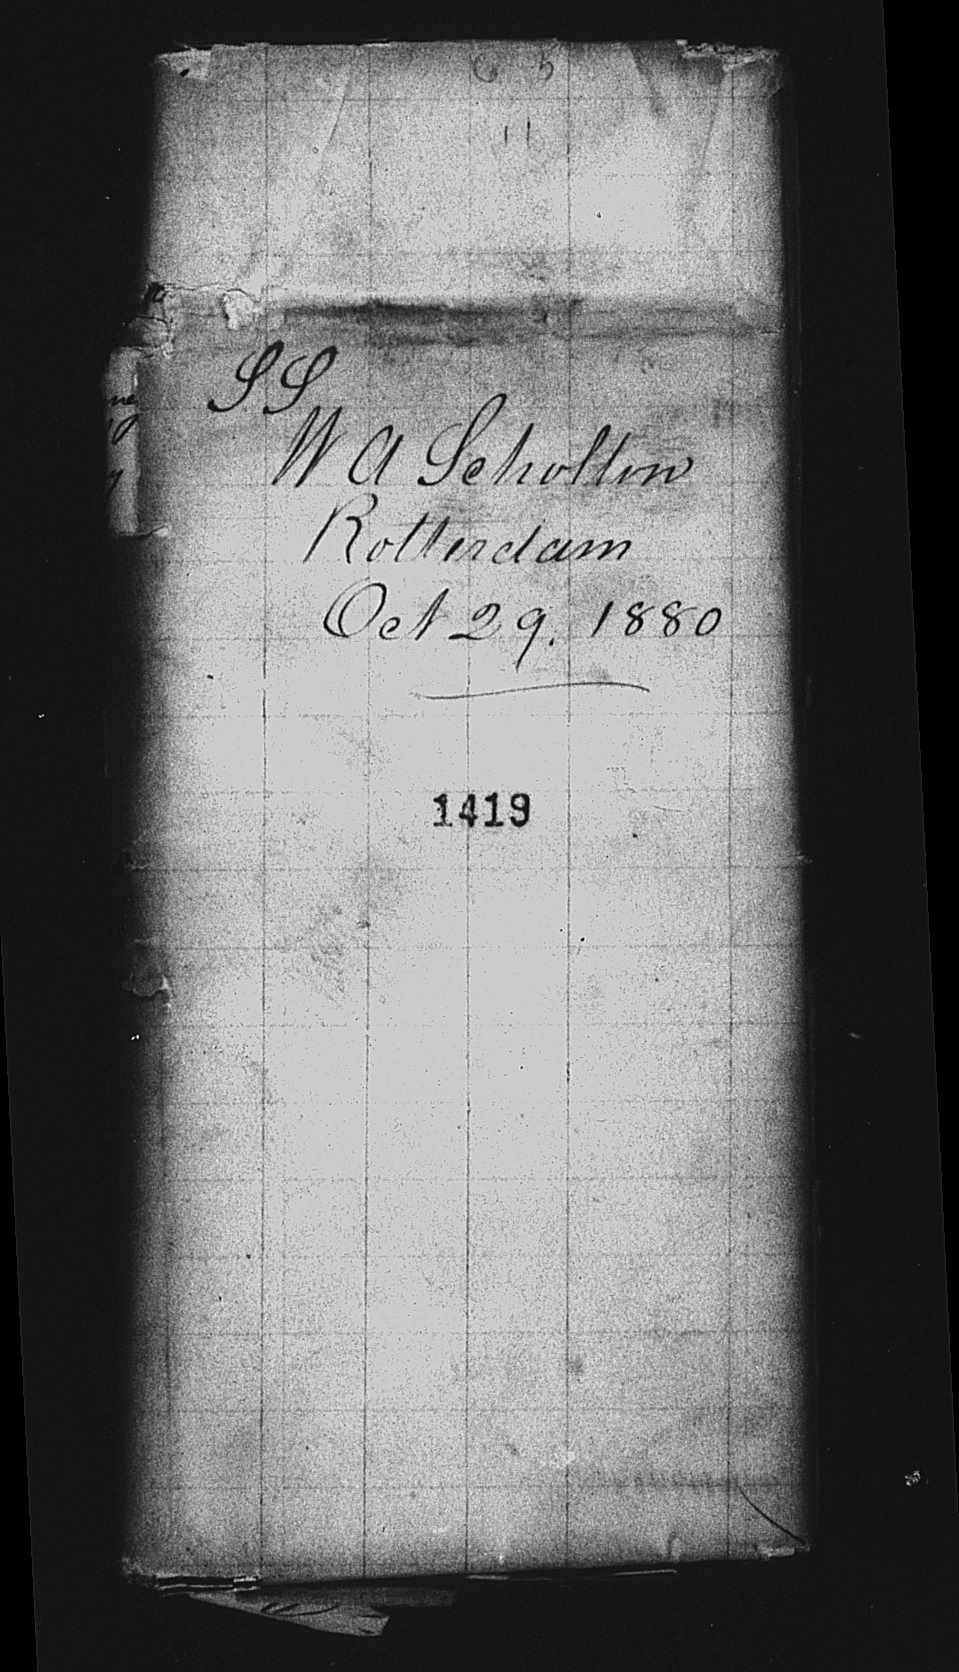 6 5
11
SS
W A Scholten
Rotterdam
Oct 29. 1880
1419